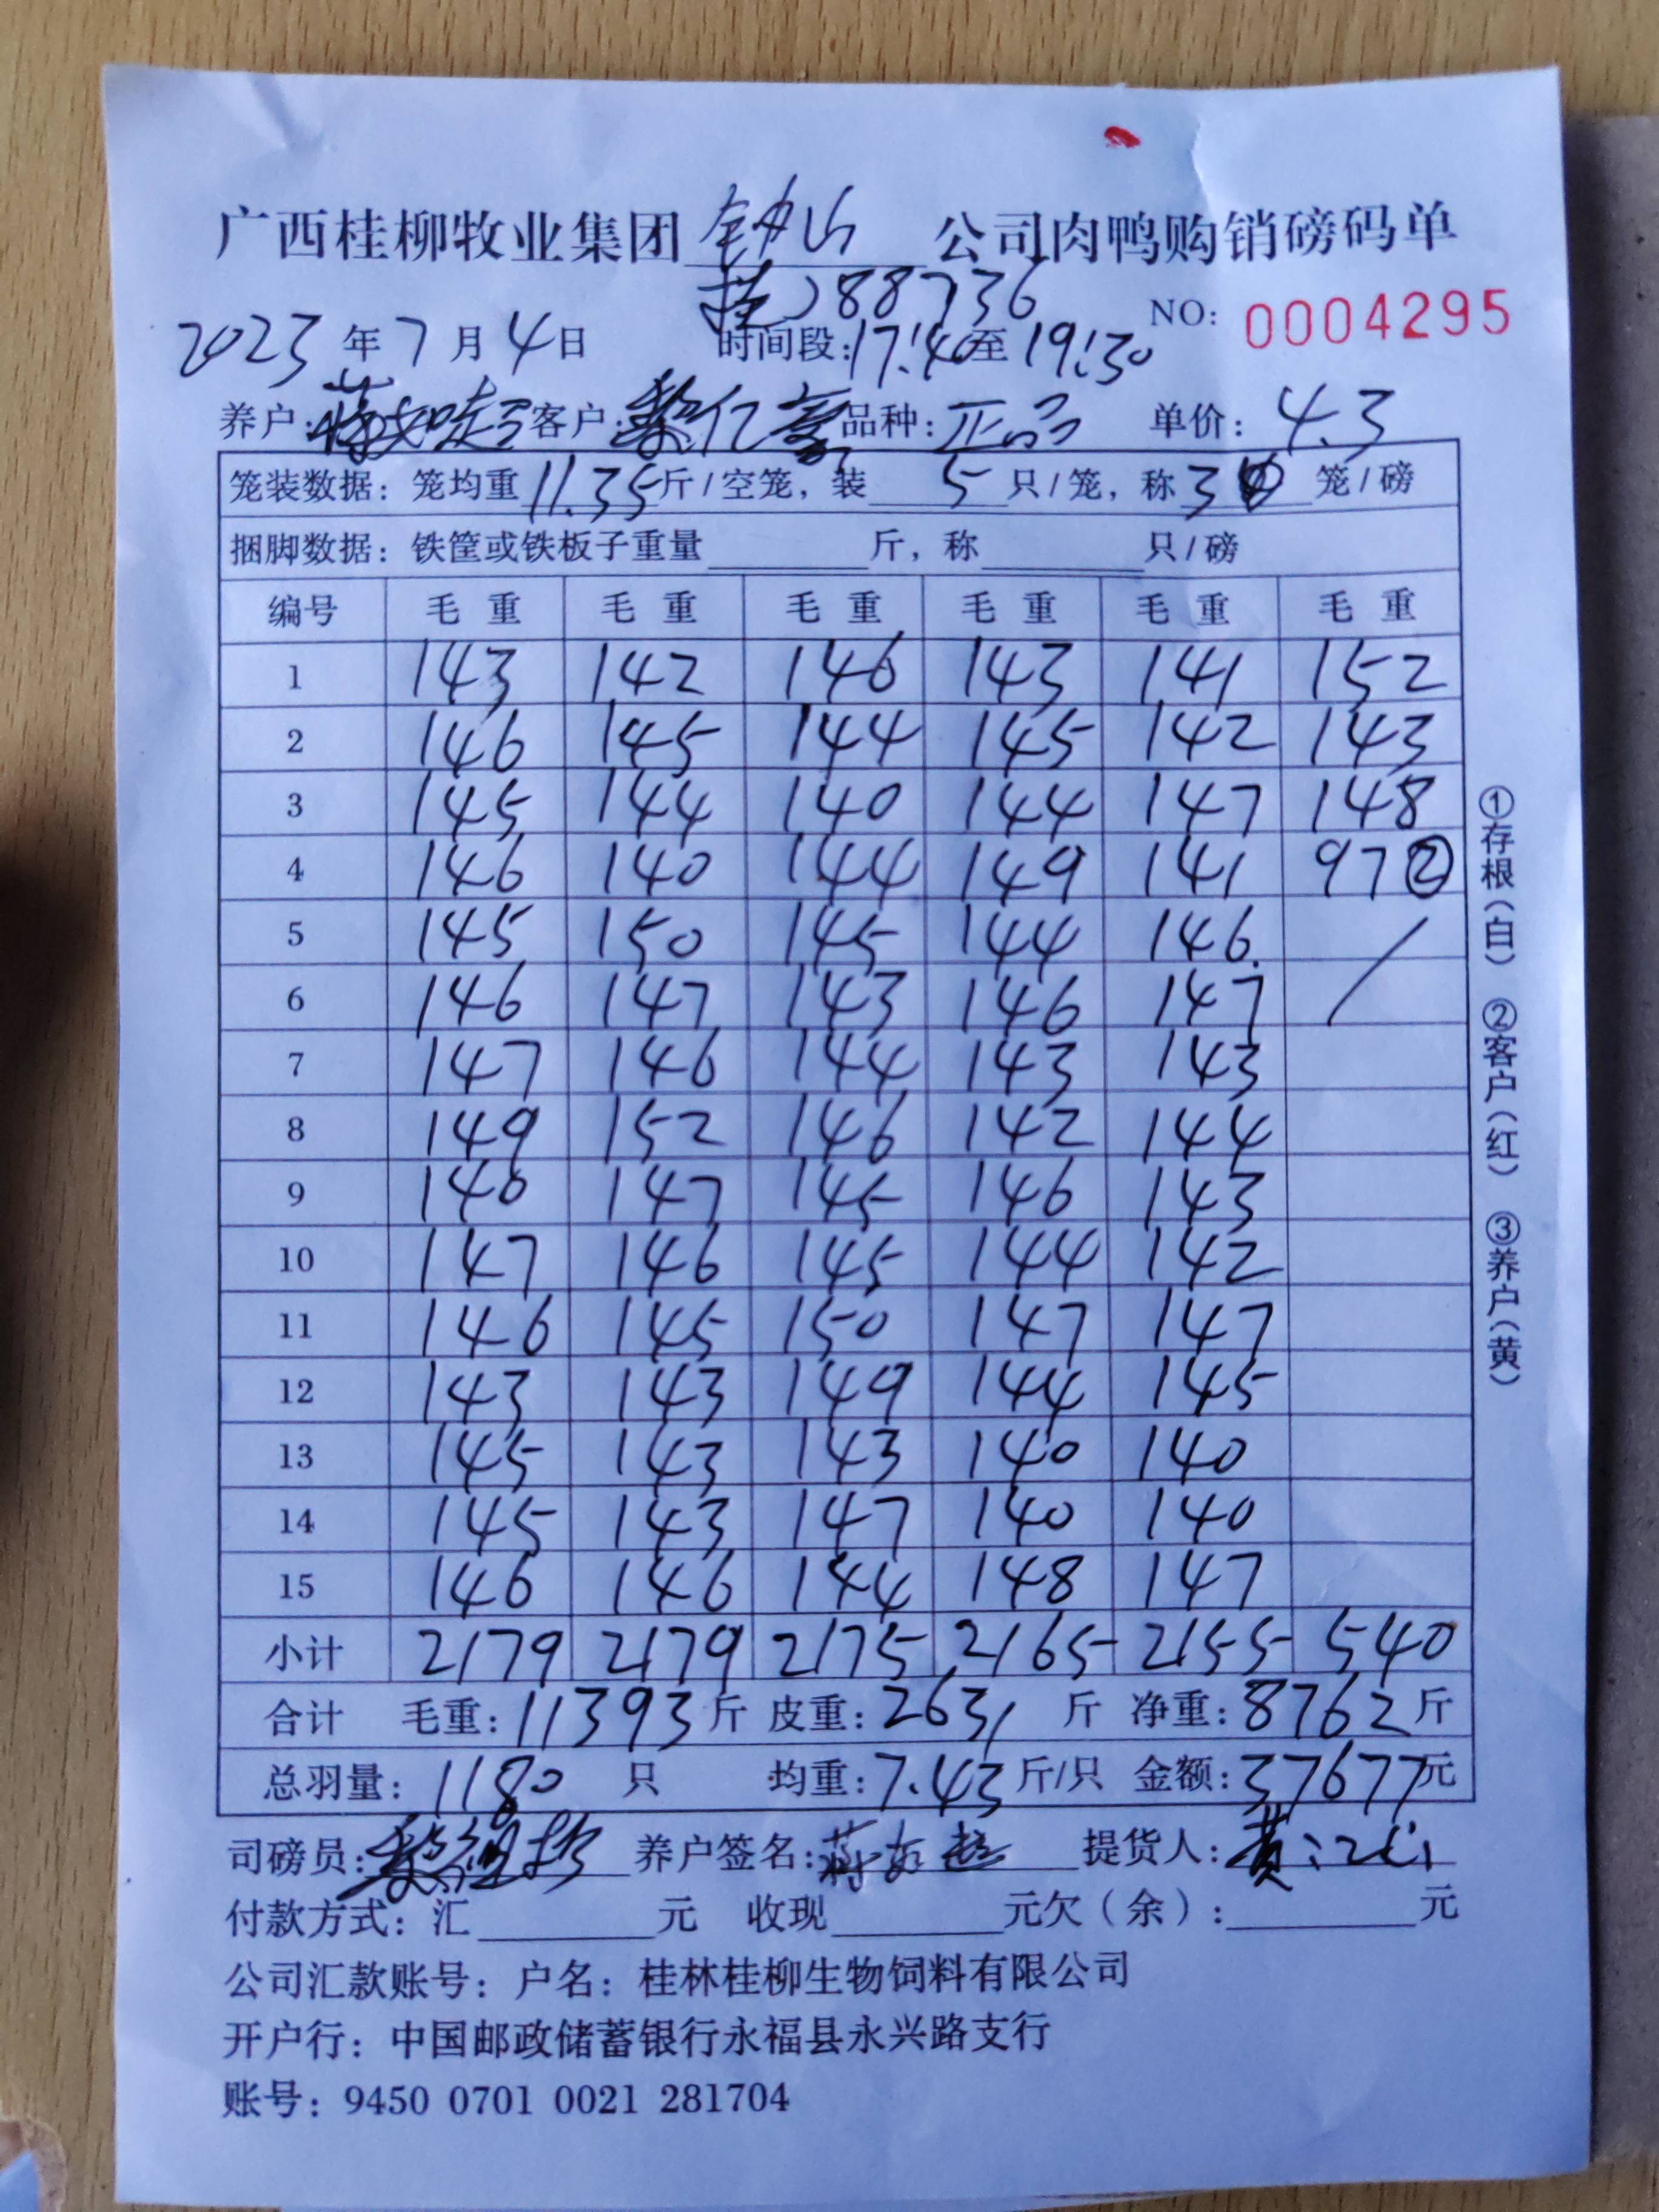 广西桂柳牧业集团 钟山 公司肉鸭购销磅码单
桂J88736
NO: 0004295
2023 年 7 月 4 日 时间段: 17:40 至 19:30
养户: 客户: 黎亿豪 品种: 正品 单价: 4.3
笼装数据: 笼均重 11.35 斤/空笼, 装 5 只/笼, 称 3 笼/磅
捆脚数据: 铁筐或铁板子重量 斤, 称 只/磅
编号 毛重 毛重 毛重 毛重 毛重 毛重
1 143 142 146 143 141 152
2 146 145 144 145 142 143
3 145 144 140 144 147 148
4 146 140 144 149 141 97②
5 145 150 145 144 146
6 146 147 143 146 147
7 147 146 144 143 143
8 149 152 146 142 144
9 140 147 145 146 143
10 147 146 145 144 142
11 146 145 150 147 147
12 143 143 149 144 145
13 145 143 143 140 140
14 145 143 147 140 140
15 146 146 144 148 147
小计 2179 2179 2175 2165 2155 540
合计 毛重: 11393 斤 皮重: 2631 斤 净重: 8762 斤
总羽量: 1180 只 均重: 7.43 斤/只 金额: 37677 元
司磅员: 养户签名: 提货人:
付款方式: 汇 元 收现 元欠(余): 元
公司汇款账号: 户名: 桂林桂柳生物饲料有限公司
开户行: 中国邮政储蓄银行永福县永兴路支行
账号: 9450 0701 0021 281704
①存根(白) ②客户(红) ③养户(黄)